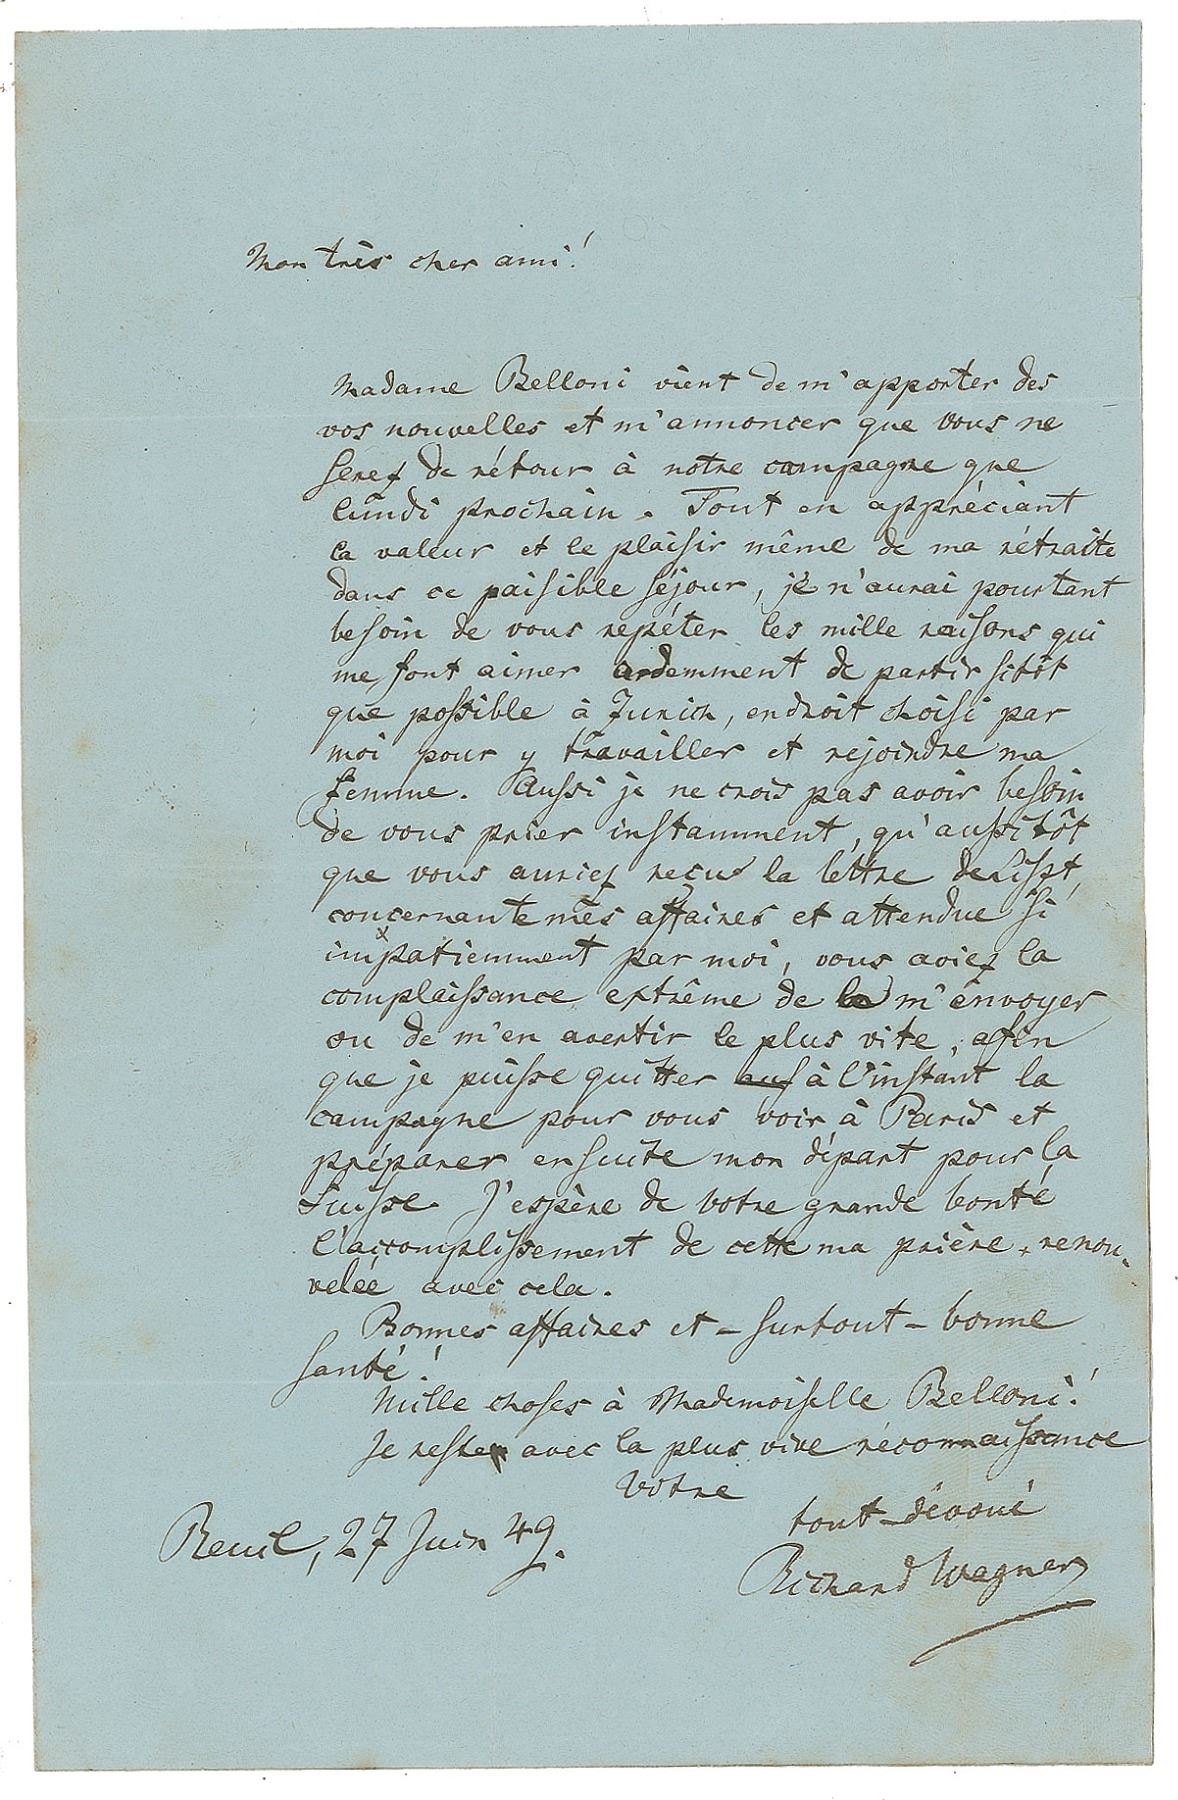 Mon très cher ami!
Madame Belloni vient de m'apporter des
vos nouvelles et m'annoncer que vous ne
serez de rétour à notre campagne que
lundi prochain. Tout en appréciant
la valeur et le plaisir même de ma rétraite
dans ce paisible séjour, je n'aurai pourtant
besoin de vous repéter les mille raisons qui
me font aimer ardemment de partir sitôt
que possible à Zurich, endroit choisi par
moi pour y travailler et rejoindre ma
femme. Aussi je ne crois pas avoir besoin
de vous prier instamment, qu'aussitôt
que vous auriez reçu la lettre de Liszt,
concernante mes affaires et attendue si
impatiemment par moi, vous aviez la
complaissance extrême de la m'envoyer
ou de m'en avertir le plus vite, afin
que je puisse quitter à l'instant la
campagne pour vous voir à Paris et
préparer ensuite mon départ pour la
Suisse. J'espère de votre grande bonté
l'accomplissement de cette ma prière, renou-
velée avec cela.
Bonnes affaires et - surtout - bonne
santé!
Mille choses à Mademoiselle Belloni!
Je reste avec la plus vive réconnaissance
Votre
tout-dévoué
Reuil, 27 Juin 49.
Richard Wagner